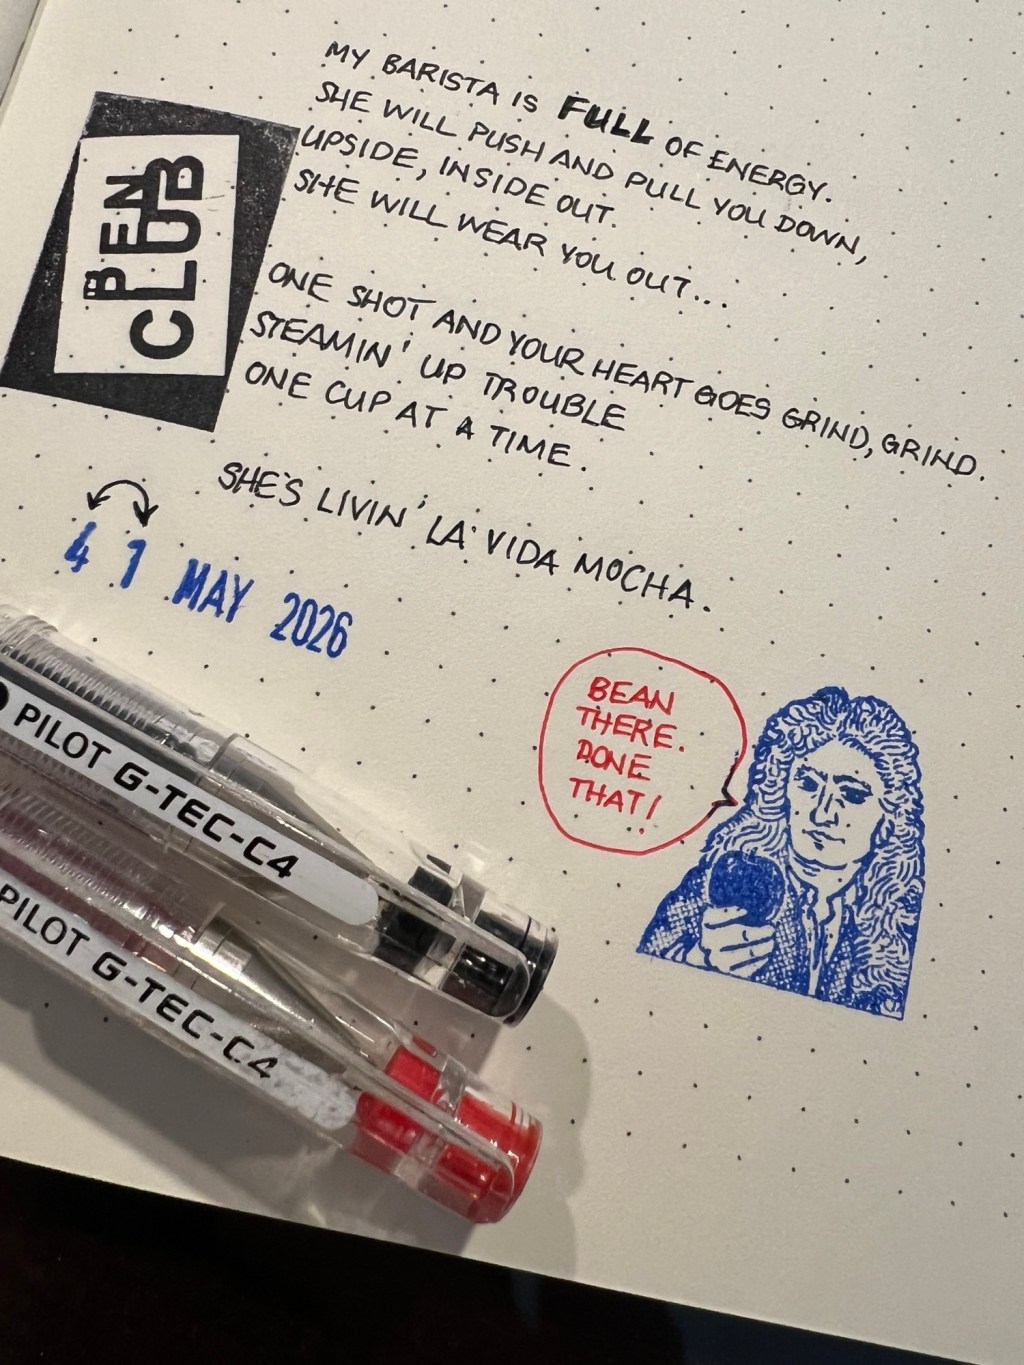 MY BARISTA IS FULL OF ENERGY.
SHE WILL PUSH AND PULL YOU DOWN,
UPSIDE, INSIDE OUT.
SHE WILL WEAR YOU OUT...
ONE SHOT AND YOUR HEART GOES GRIND, GRIND.
STEAMIN' UP TROUBLE
ONE CUP AT A TIME.
SHE'S LIVIN' LA VIDA MOCHA.
PEN
CLUB
4 1 MAY 2026
BEAN
THERE.
DONE
THAT!
PILOT G-TEC-C4
PILOT G-TEC-C4